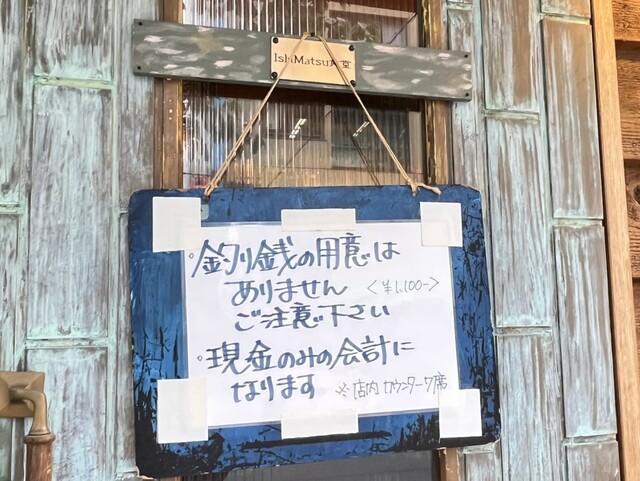 IshiMatsu食堂
・釣り銭の用意は
ありません <¥1,100->
ご注意下さい
・現金のみの会計に
なります ※店内カウンター7席